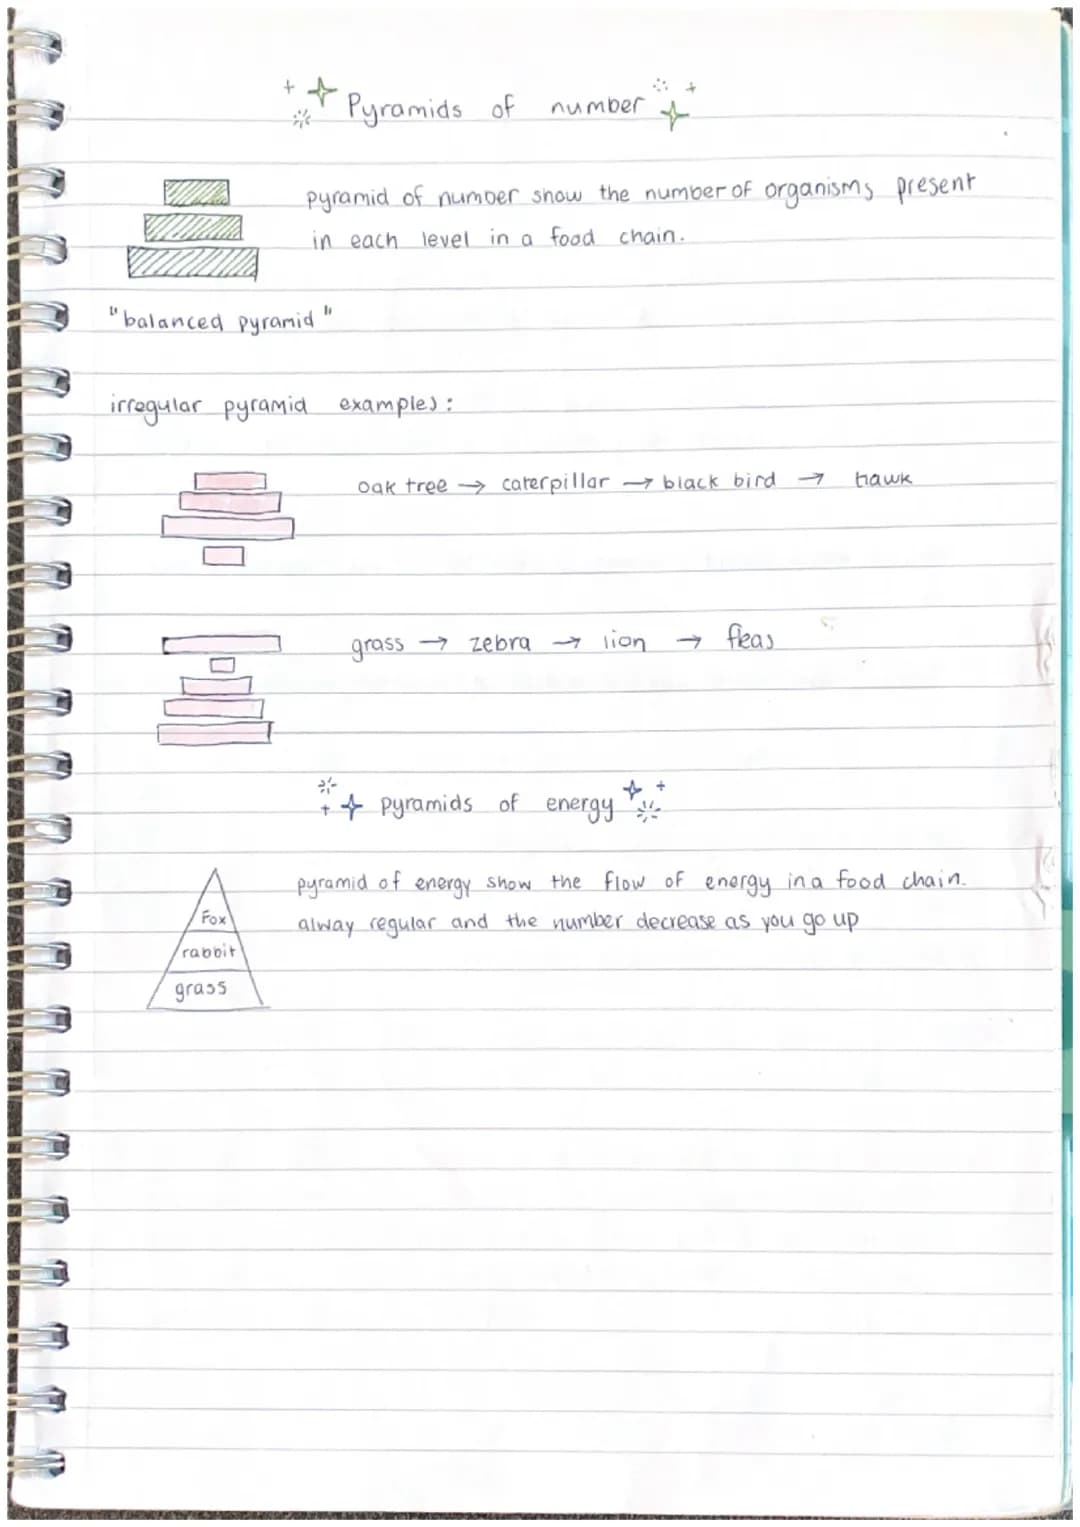 Pyramids of number
pyramid of number show the number of organisms present
in each level in a food chain.
"balanced pyramid"
irregular pyramid examples:
oak tree → caterpillar → black bird → hawk
grass → zebra → lion → fleas
pyramids of energy
pyramid of energy show the flow of energy in a food chain.
alway regular and the number decrease as you go up
Fox
rabbit
grass